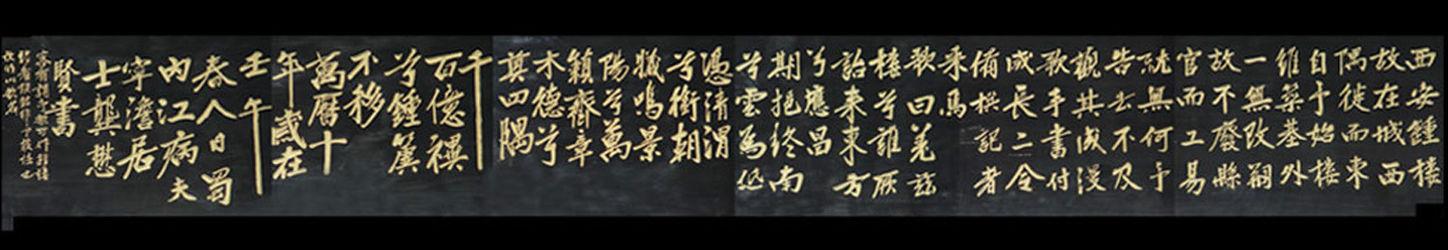 西安鍾樓
故在城西
隅徙而東
自予始樓
維築基外
一無改剏
故不廢縣
官而工易
就無何予
告去不及
觀其成漫
歌手書付
咸長二令
備撰記者
采焉
歌曰羌茲
樓兮誰厥
詒來東方
兮應昌
期挹終南
兮雲為低
憑清渭
兮銜朝
曦鳴景
陽兮萬
籟齊章
木德兮
奠四隅
千
百億禩
兮鍾簴
不移
萬曆十
年歲在
壬午
春人日蜀
內江病夫
寧澹居
士龔懋
賢書